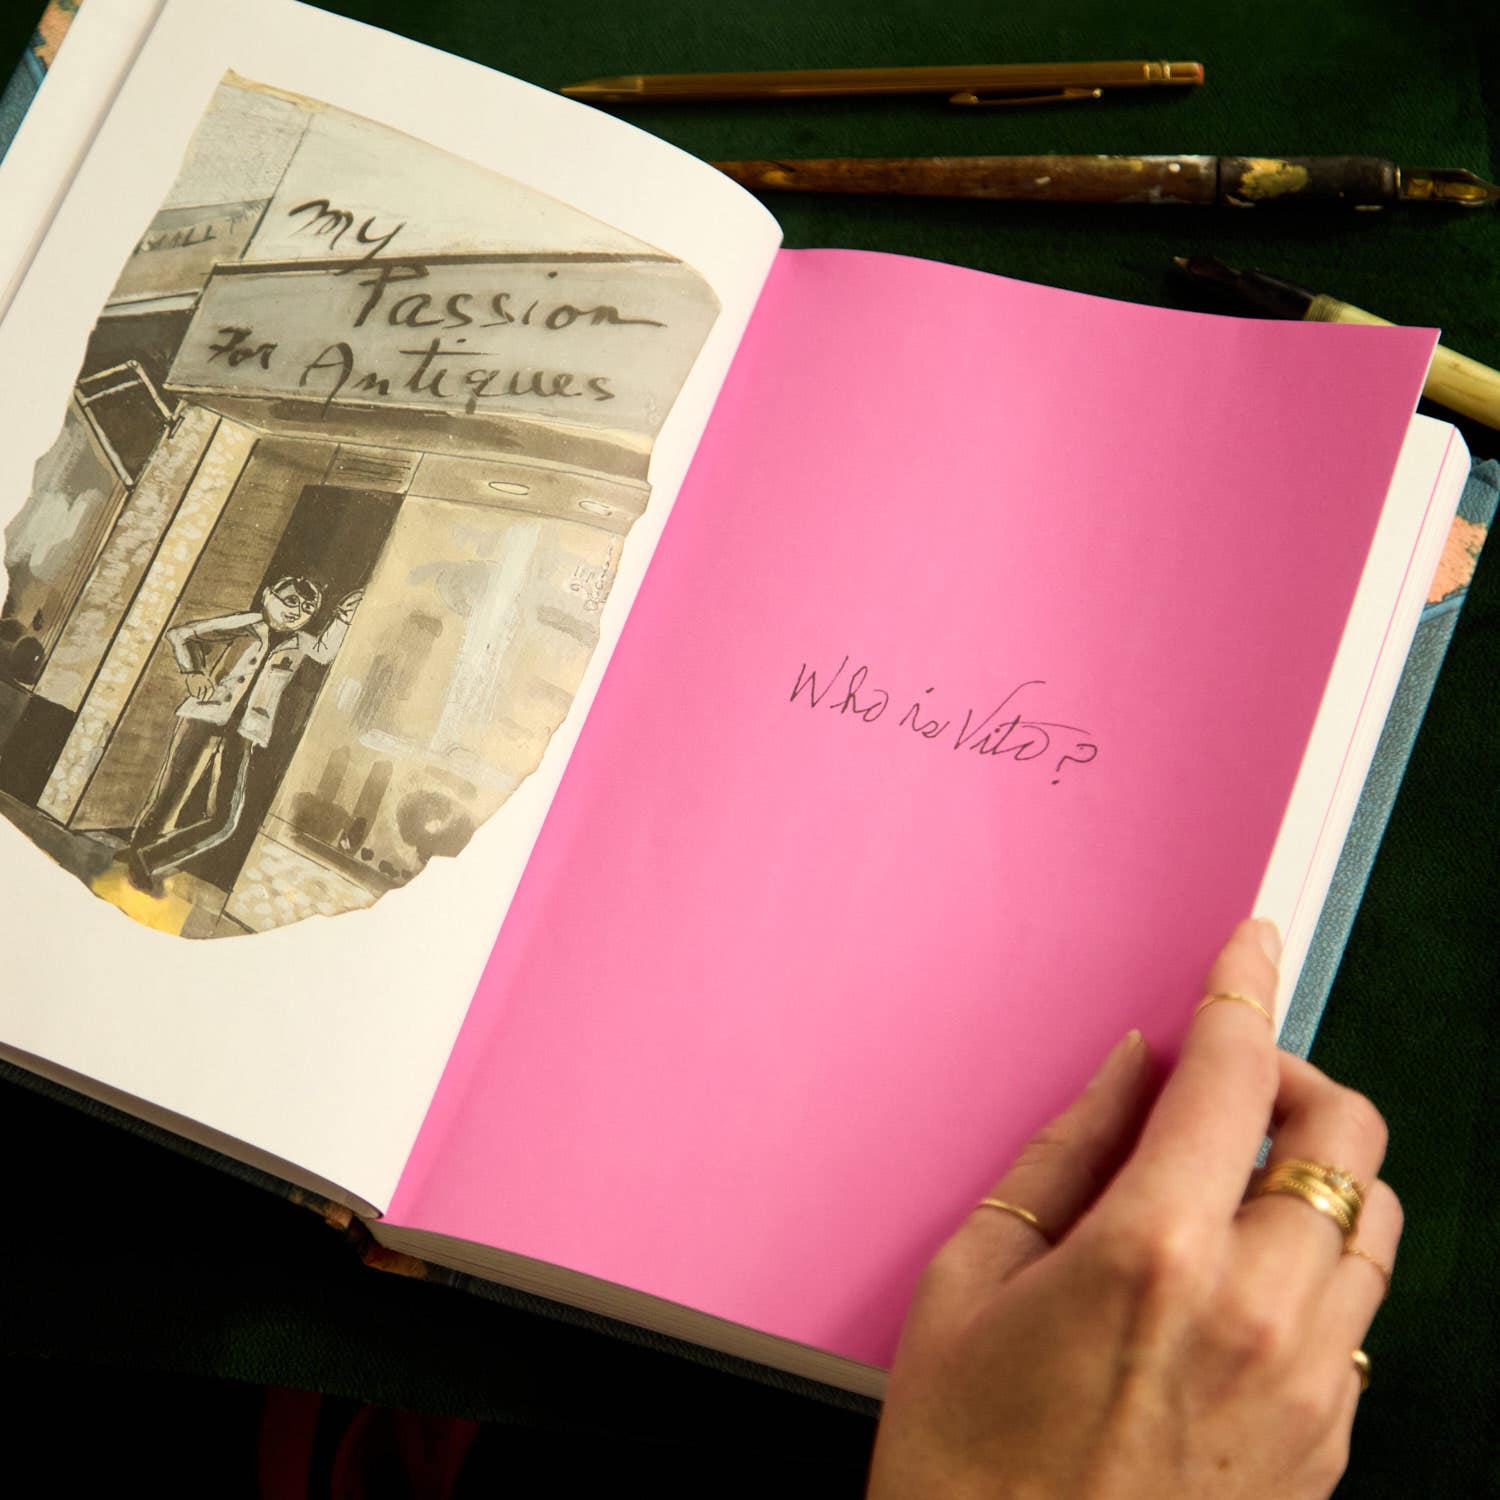 My
Passion
For Antiques
Who is Vito?